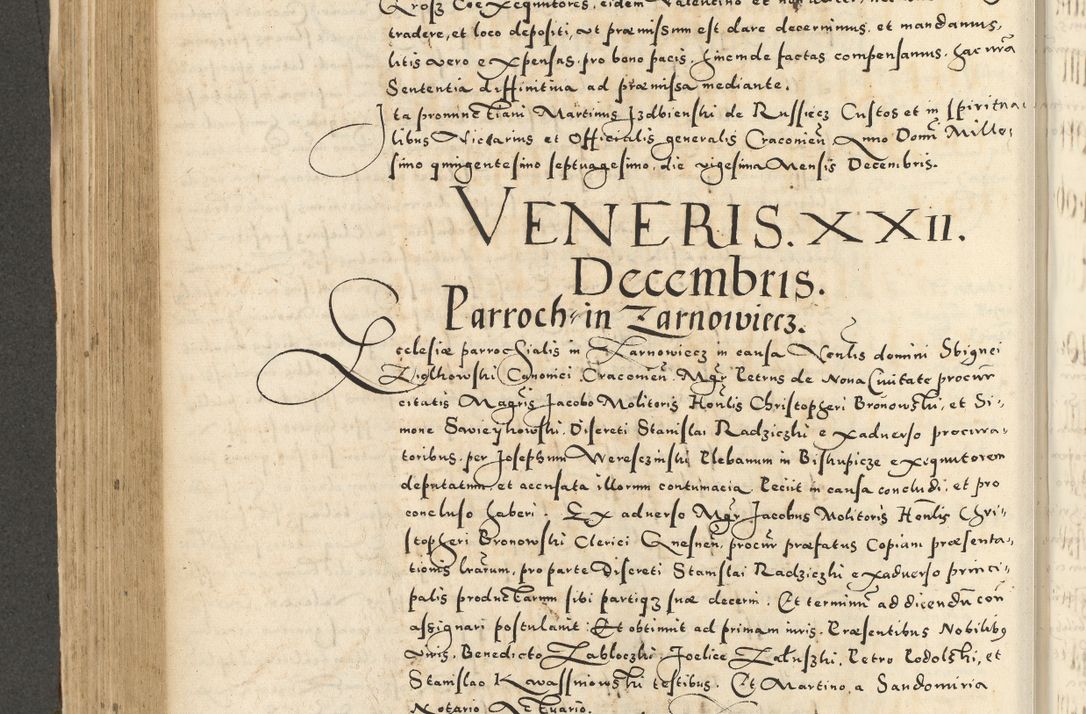 Grosz Coexequutores, eidem Valentino et
tradere, et loco depositi, ut præmissum est dare decernimus, et mandamus,
litis vero expensas, pro bono pacis, hincinde factas compensamus, hac nra
Sententia diffinitiva ad præmissa mediante.
Ita pronunctiavi Martinus Izdbienski de Russiecz Custos et in spiritua-
libus Vicarius et Officialis generalis Cracovien, Anno Domi Mille-
simo quingentesimo septuagesimo, die vigesima Mensis Decembris.
VENERIS. XXII.
Decembris.
Parroch: in Zarnowiecz.
Ecclesiæ parrochialis in Zarnowiecz in causa Venlis domini Sbignei
Ziolkowski Canonici Cracovien, Mgr Petrus de Nova Civitate procur
citatis Magris Jacobo Molitoris Honlis Christopheri Bronowski, et Si-
mone Savieykowski, Discreti Stanislai Radziczki ex adverso procura-
toribus, per Josephum Weresczinski Plebanum in Biskupicze exequutorem
deputatum et accusata illorum contumacia Peciit in causa concludi, et pro
concluso haberi. Ex adverso Mgr Jacobus Molitoris Honlis Chri-
stopheri Bronowski Clerici Gnesnen, procur præfatus Copiam præsenta-
tionis lrarum, pro parte Discreti Stanislai Radziczki ex adverso princi-
palis productarum sibi partiq; suæ decerni: Et terminu ad dicendu con
assignari postulavit: Et obtinuit ad primam iuris. Præsentibus Nobilibq
viris, Benedicto Zabloczki, Joelice Załuszki, Petro Podolski, et
Stanislao Kwassniowski testibus. Et Martino a Sandomiria
Notario Actuario.